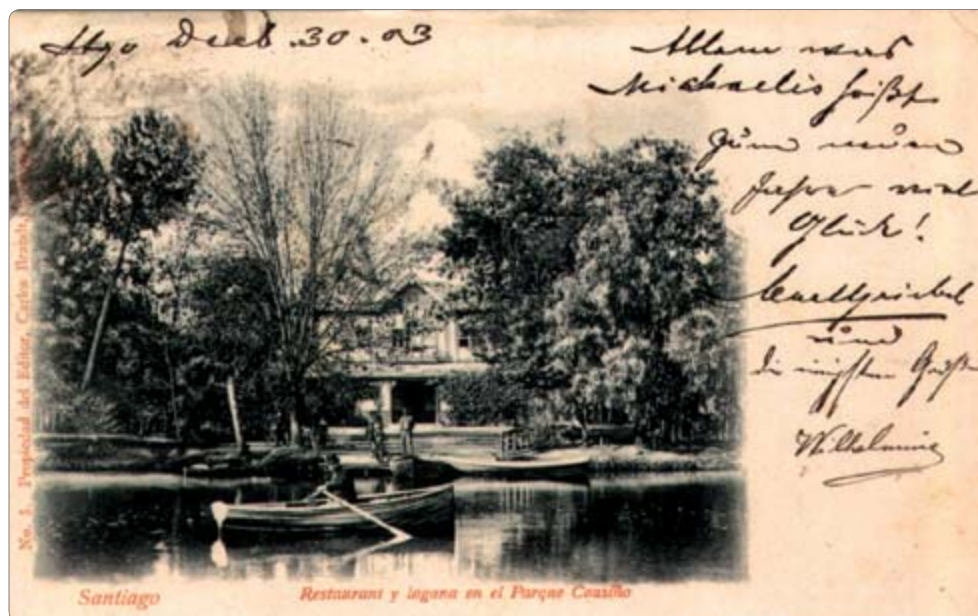 Stgo Decb. 30. 03
Allem was
Michaelis heißt
zum neuen
Jahre viel
Glück!
und
die
Wilhelmine
No. 1. Propiedad del Editor, Carlos Brandt,
Santiago
Restaurant y lagana en el Parque Cousiño